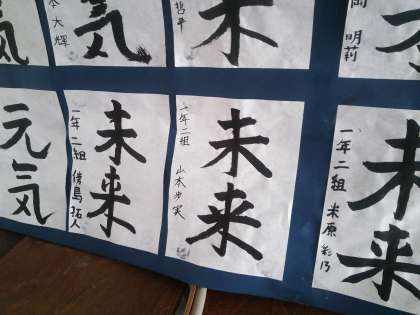 本大輝
気
未
哲平
岡 明莉
元気
一年二組
拓人
未来
一年二組 山本歩実
未来
一年二組 米原彩乃
未来